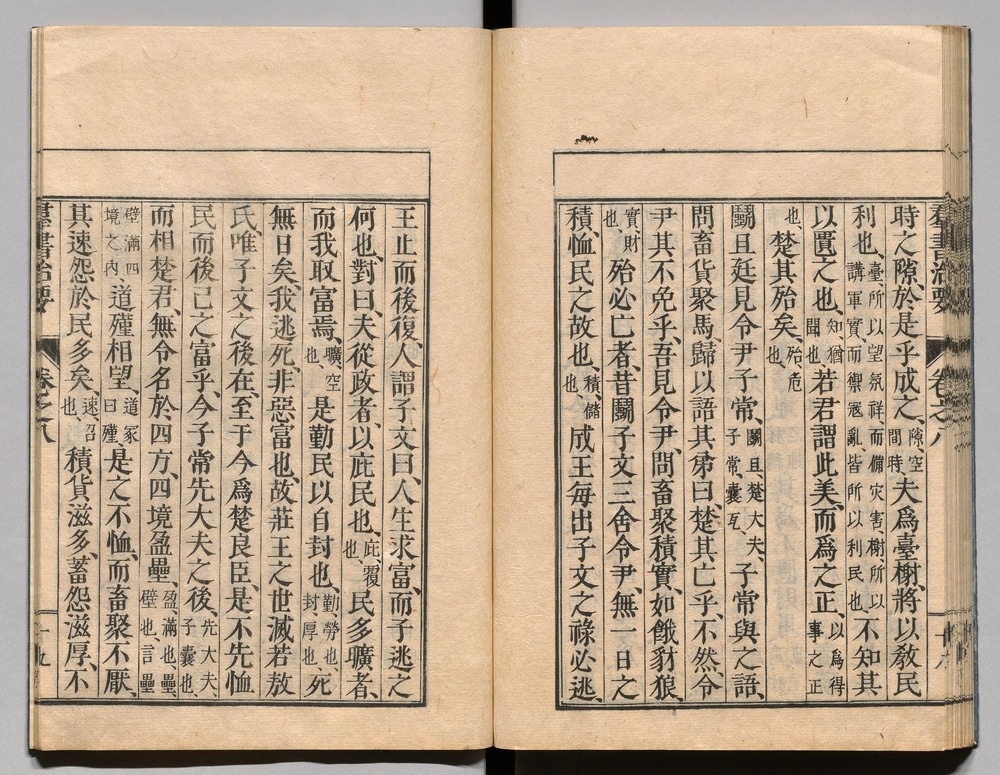 羣書治要 卷之八 十八
時之隙、於是乎成之、隙、空間時、夫爲臺榭、將以敎民
利也、臺所以望氛祥而備灾害、榭所以講軍實而禦冦亂、皆所以利民也、不知其
以匱之也、知、猶聞也、若君謂此美、而爲之正、以爲得事之正
也、楚其殆矣、殆、危也、
鬭且廷見令尹子常、鬭且楚大夫、子常囊瓦、子常與之語、
問畜貨聚馬、歸以語其弟曰、楚其亡乎、不然、令
尹其不免乎、吾見令尹、問畜聚積實、如餓豺狼、
實、財也、殆必亡者、昔鬭子文三舍令尹、無一日之
積、恤民之故也、積、儲也、成王每出子文之祿必逃、
王止而後復、人謂子文曰、人生求富、而子逃之
何也、對曰、夫從政者、以庇民也、庇、覆也、民多曠者、
而我取富焉、曠、空也、是勤民以自封也、勤、勞也、封、厚也、死
無日矣、我逃死、非惡富也、故莊王之世滅若敖
氏、唯子文之後在、至于今爲楚良臣、是不先恤
民而後己之富乎、今子常先大夫之後、先大夫、子囊也、
而相楚君、無令名於四方、四境盈壘、盈、滿也、壘、壁也、言壘
壁滿四境之內、道殣相望、道冢曰殣、是之不恤、而畜聚不厭、
其速怨於民多矣、速、召也、積貨滋多、蓄怨滋厚、不
羣書治要 卷之八 十九